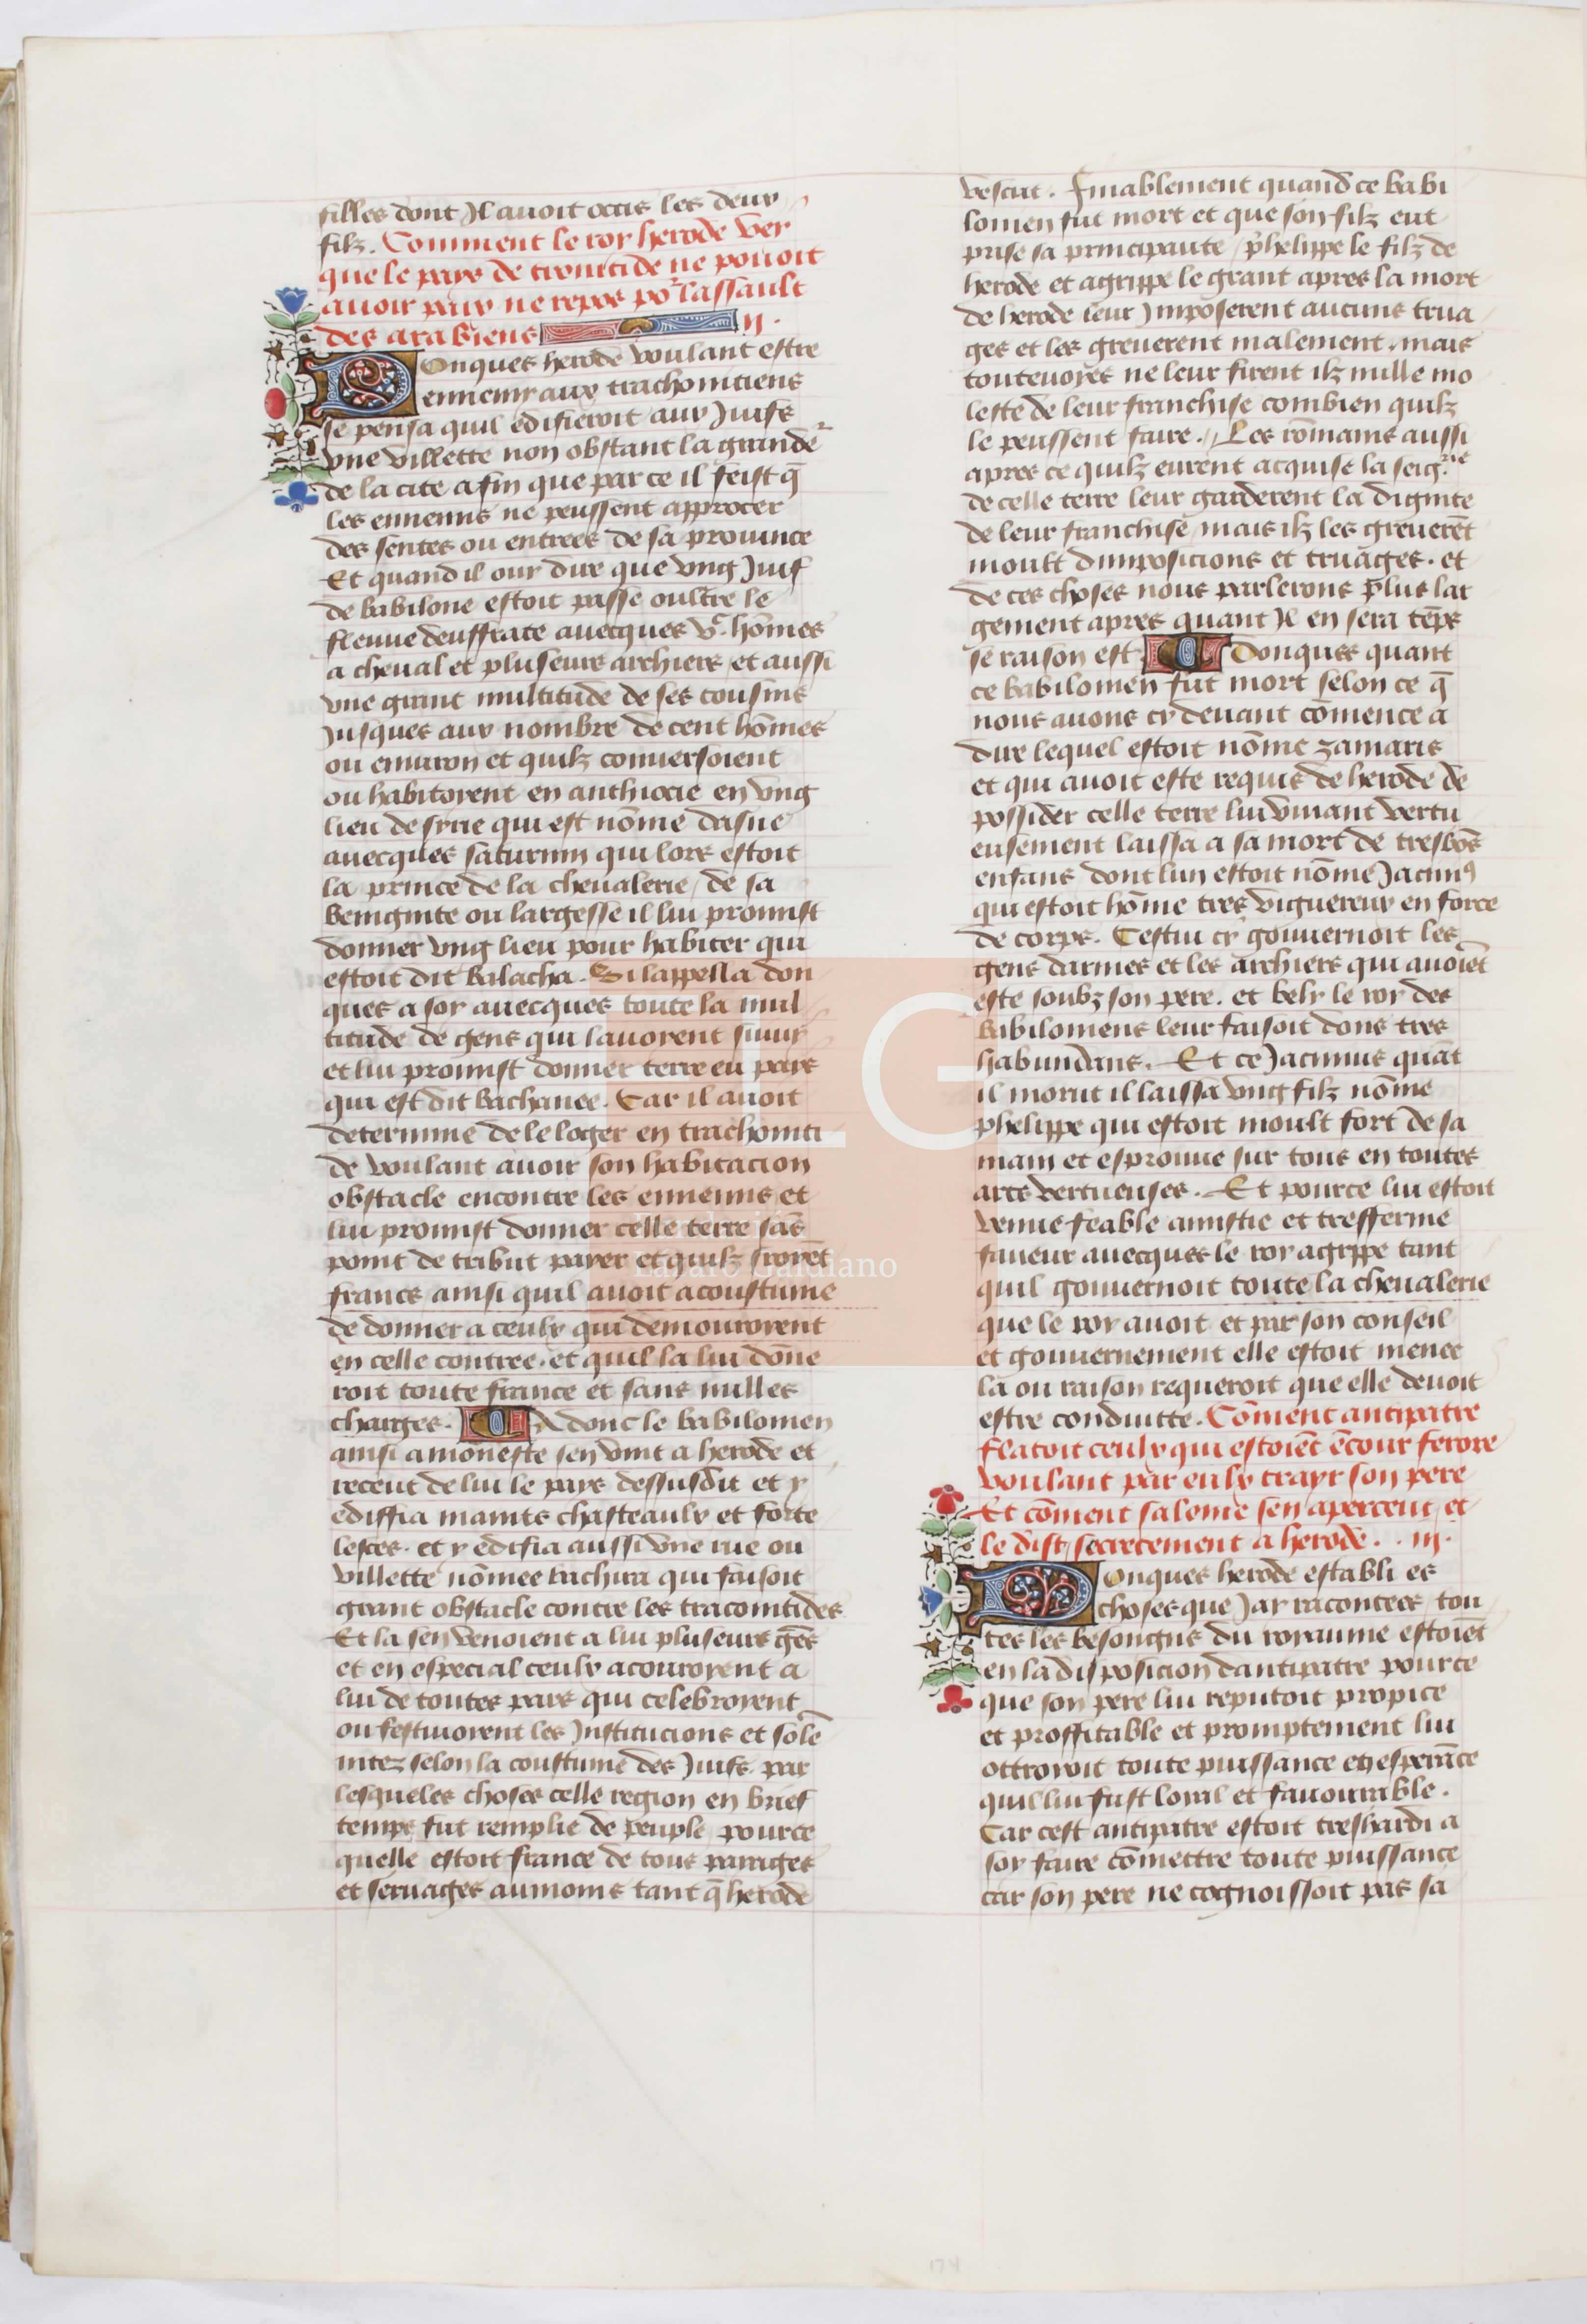 filles dont Jl auoit occis les deux
filz. Comment le roy herode ver
que le pays de traconitide ne pouoit
auoir paix ne repos po͛ lassault
des arabiens ij.
Donques herode voulant estre
ennemy aux trachonitiens
se pensa quil edifieroit aux Juifs
vne villette non obstant la grande͛
de la cite afin que par ce il feist q̄
les ennemis ne peussent approcer
des sentes ou entrees de sa prouince
Et quand il ouy dire que vng Juif
de babilone estoit passe oultre le
fleuue deuffrate auecques vc. hōmes
a cheual et pluseurs archiers et aussi
vne grant multitude de ses cousins
Jusques aux nombre de cent hōmes
ou enuiron et quilz conuersoient
ou habitoyent en anthiocie en vng
lieu de syrie qui est nōme dasne
auecques saturnin qui lors estoit
la prince de la cheualerie, de sa
benignite ou largesse il lui promist
donner vng lieu pour habiter qui
estoit dit balacha. Si lappella don
ques a soy auecques toute la mul
titude de gens qui lauoyent suiuy
et lui promist donner terre eu pays
qui est dit bachanee. Car il auoit
determine de le loger en trachoniti
de voulant auoir son habitacion
obstacle encontre les ennemis et
lui promist donner celle terre sās
point de tribut payer et quilz sroyēt
francs ainsi quil auoit acoustume
de donner a ceulx qui demouroyent
en celle contree. et quil la lui dōne
roit toute france et sans nulles
charges. Adonc le babilonien
ainsi amoneste sen vint a herode et
receut de lui le pays dessusdit et y
ediffia maints chasteaulx et forte
lesces. et y edifia aussi vne rue ou
villette nōmee bachira qui faisoit
grant obstacle contre les traconitides
Et la sen venoient a lui pluseurs gēs
et en especial ceulx acouroyent a
lui de toutes pars qui celebroyent
ou festiuoyent les Institucions et solē
nitez selon la coustume des Juifs par
lesqueles choses celle region en brief
temps fut remplie de peuple pource
quelle estoit france de tous parages
et seruages aumoins tant q̄ herode
vescut. Finablement quand ce babi
lonien fut mort et que son filz eut
prise sa principaute, phelippe le filz de
herode et agrippe le grant apres la mort
de herode leur Imposerent aucuns trua
ges et les greuerent malement. mais
touteuoyes ne leur firent ilz nulle mo
leste de leur franchise combien quilz
le peussent faire. Les rōmains aussi
apres ce quilz eurent acquise la seig.rie
de celle terre leur garderent la dignite
de leur franchise, mais ilz les greuerēt
moult dimposicions et truages. et
de ces choses nous parlerons plus lar
gement apres quant Jl en sera tēps
se raison est Donques quant
ce babilonien fut mort selon ce q̄
nous auons cy deuant cōmence a
dire lequel estoit nōme zamaris
et qui auoit este requis de herode de
possider celle terre lui viuant vertu
eusement laissa a sa mort de tresbōs
enfans dont lun estoit nōme Jacimꝰ
qui estoit hōme tres viguereux en force
de corps. Cestui cy gouuernoit les
gens darmes et les archiers qui auoiēt
este soubz son pere. et bely le roy des
babiloniens leur faisoit dons tres
habundans. Et ce Jacimus quāt
il morut il laissa vng filz nōme
phelippe qui estoit moult fort de sa
main et esprouue sur tous en toutes
ars vertueuses. Et pource lui estoit
venue feable amistie et tresferme
faueur auecques le roy agrippe tant
quil gouuernoit toute la cheualerie
que le roy auoit et par son conseil
et gouuernement elle estoit menee
la ou raison requeroit que elle deuoit
estre conduitte. Cōment antipatre
flatoit ceulx qui estoiēt ētour ferore
voulant par eulx trayr son pere
Et cōment salome sen aperceut et
le dist secretement a herode. iij.
Donques herode establi es
choses que Jay racontees, tou
tes les besongnes du royaume estoiēt
en la disposicion dantipatre pource
que son pere lui reputoit propice
et proffitable et promptement lui
ottroyoit toute puissance en esperāce
quil lui fust loyal et fauourable.
Car cest antipatre estoit treshardi a
soy faire cōmettre toute puissance
car son pere ne cognoissoit pas sa
LG
Lázaro Galdiano
174